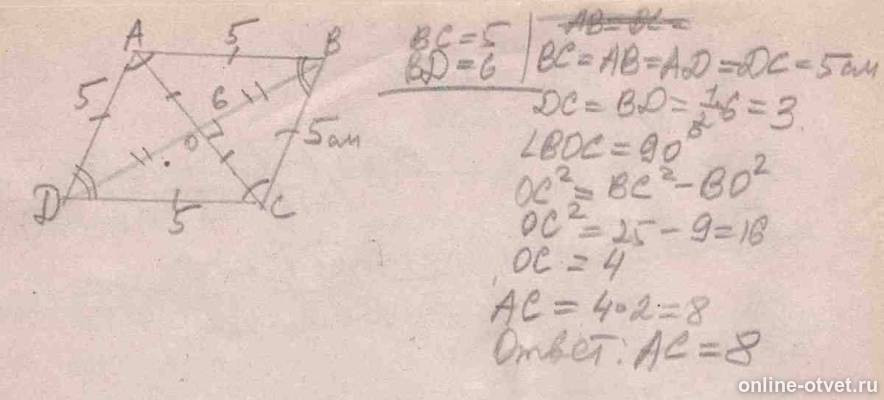 A 5 B
5 6 5 см
O
D 5 C
BC = 5
BD = 6
AB = DC =
BC = AB = AD = DC = 5 см
DC = BD = 1/2 6 = 3
∠BOC = 90°
OC² = BC² - BO²
OC² = 25 - 9 = 16
OC = 4
AC = 4 · 2 = 8
Ответ: AC = 8
online-otvet.ru